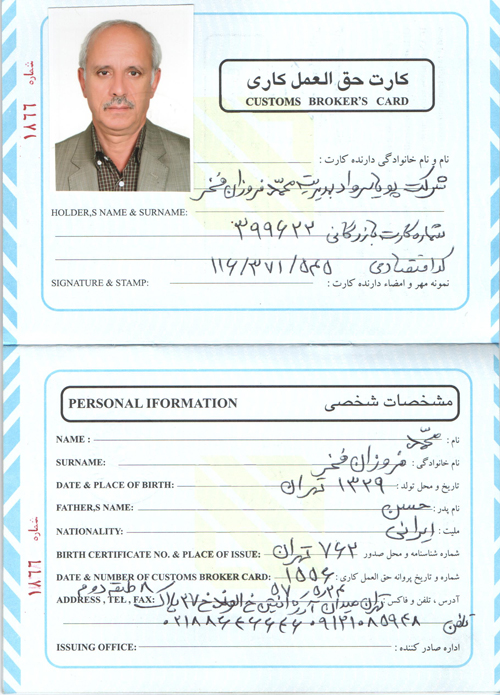 شماره ۱۸۶۶
کارت حق العمل کاری
CUSTOMS BROKER'S CARD
نام و نام خانوادگی دارنده کارت :
شرکت پویا رواد بمدیریت محمد فروزان فخر
HOLDER,S NAME & SURNAME:
شماره کارت بازرگانی ۳۹۹۶۲۲
کد اقتصادی ۱۱۶/۳۷۱/۵۴۵
SIGNATURE & STAMP: نمونه مهر و امضاء دارنده کارت :
PERSONAL IFORMATION مشخصات شخصی
NAME : محمد نام :
SURNAME: فروزان فخر نام خانوادگی :
DATE & PLACE OF BIRTH: ۱۳۲۹ تهران تاریخ و محل تولد :
FATHER,S NAME: حسن نام پدر :
NATIONALITY: ایرانی ملیت :
شماره ۱۸۶۶
BIRTH CERTIFICATE NO. & PLACE OF ISSUE: ۷۶۲ تهران شماره شناسنامه و محل صدور
DATE & NUMBER OF CUSTOMS BROKER CARD: ۱۵۵۶ شماره و تاریخ پروانه حق العمل کاری :
ADDRESS , TEL , FAX: تهران میدان آرژانتین خ الوند خ ۳۷ پلاک ۸ طبقه دوم آدرس ، تلفن و فاکس
تلفن ۰۹۱۲۱۰۸۵۹۴۸
ISSUING OFFICE: اداره صادر کننده :